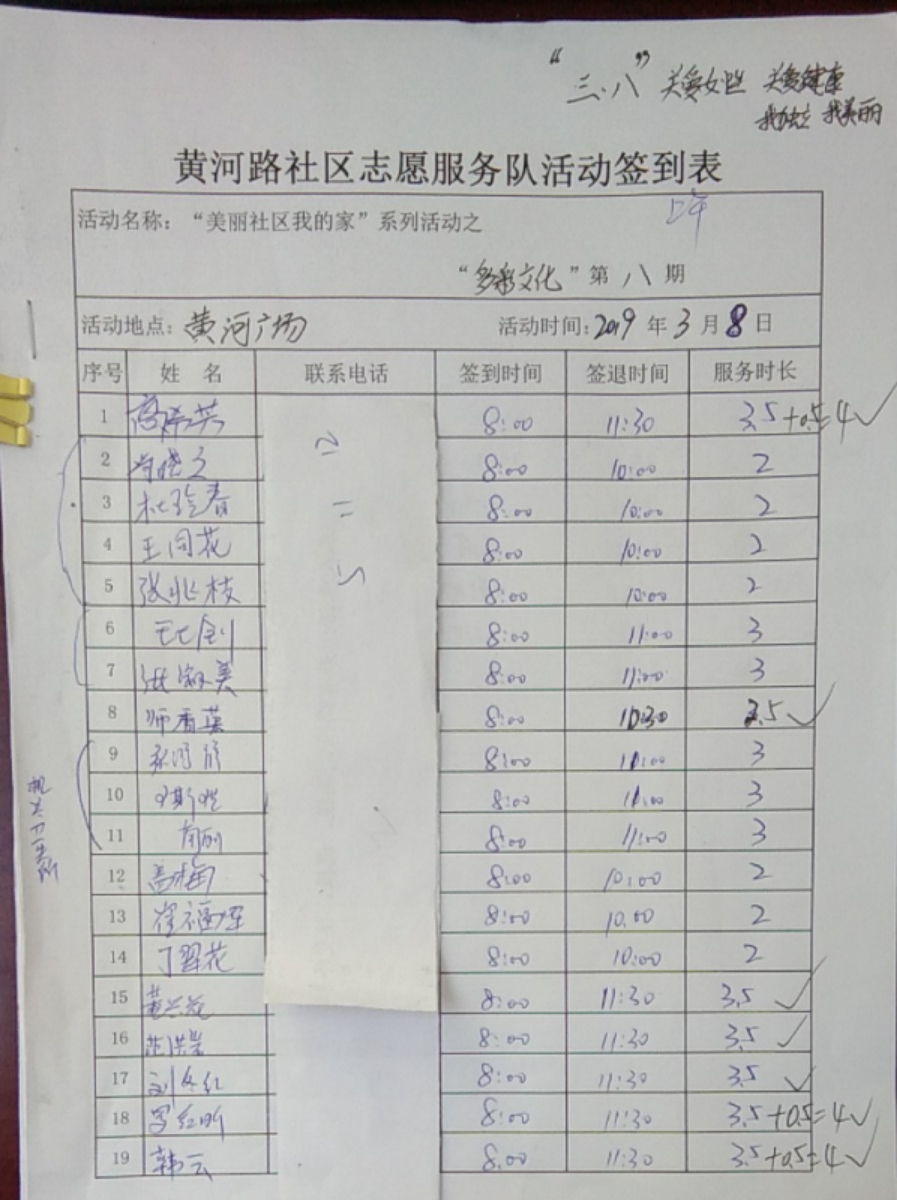 “三·八” 关爱女性 关爱健康
我独立 我美丽
黄河路社区志愿服务队活动签到表
上午
活动名称：“美丽社区我的家”系列活动之
“多彩文化”第八期
活动地点：黄河广场 活动时间：2019年3月8日
序号 姓名 联系电话 签到时间 签退时间 服务时长
1 8:00 11:30 3.5+0.5=4✓
2 8:00 10:00 2
3 杜玲春 8:00 10:00 2
4 王同花 8:00 10:00 2
5 张兆枝 8:00 10:00 2
6 8:00 11:00 3
7 张淑美 8:00 11:00 3
8 师香莲 8:00 3.5✓
9 8:00 11:00 3
10 8:00 11:00 3
11 8:00 11:00 3
12 高梅 8:00 10:00 2
13 8:00 10:00 2
14 丁翠花 8:00 10:00 2
15 黄兰花 8:00 11:30 3.5✓
16 8:00 11:30 3.5✓
17 刘冬红 8:00 11:30 3.5✓
18 罗红昕 8:00 11:30 3.5+0.5=4✓
19 韩云 8:00 11:30 3.5+0.5=4✓